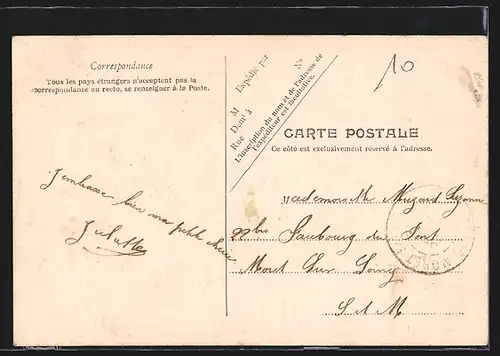 Correspondance
Tous les pays étrangers n'acceptent pas la
correspondance au recto, se renseigner à la Poste.
Expédié par
M
Demt à
Rue
No
L'inscription du nom et de l'adresse de
l'expéditeur est facultative.
10
CARTE POSTALE
Ce côté est exclusivement réservé à l'adresse.
J'embrasse bien ma petite chérie
Juliette
Mademoiselle
22 bis Faubourg du Pont
Moret sur Loing
S et M
MORET